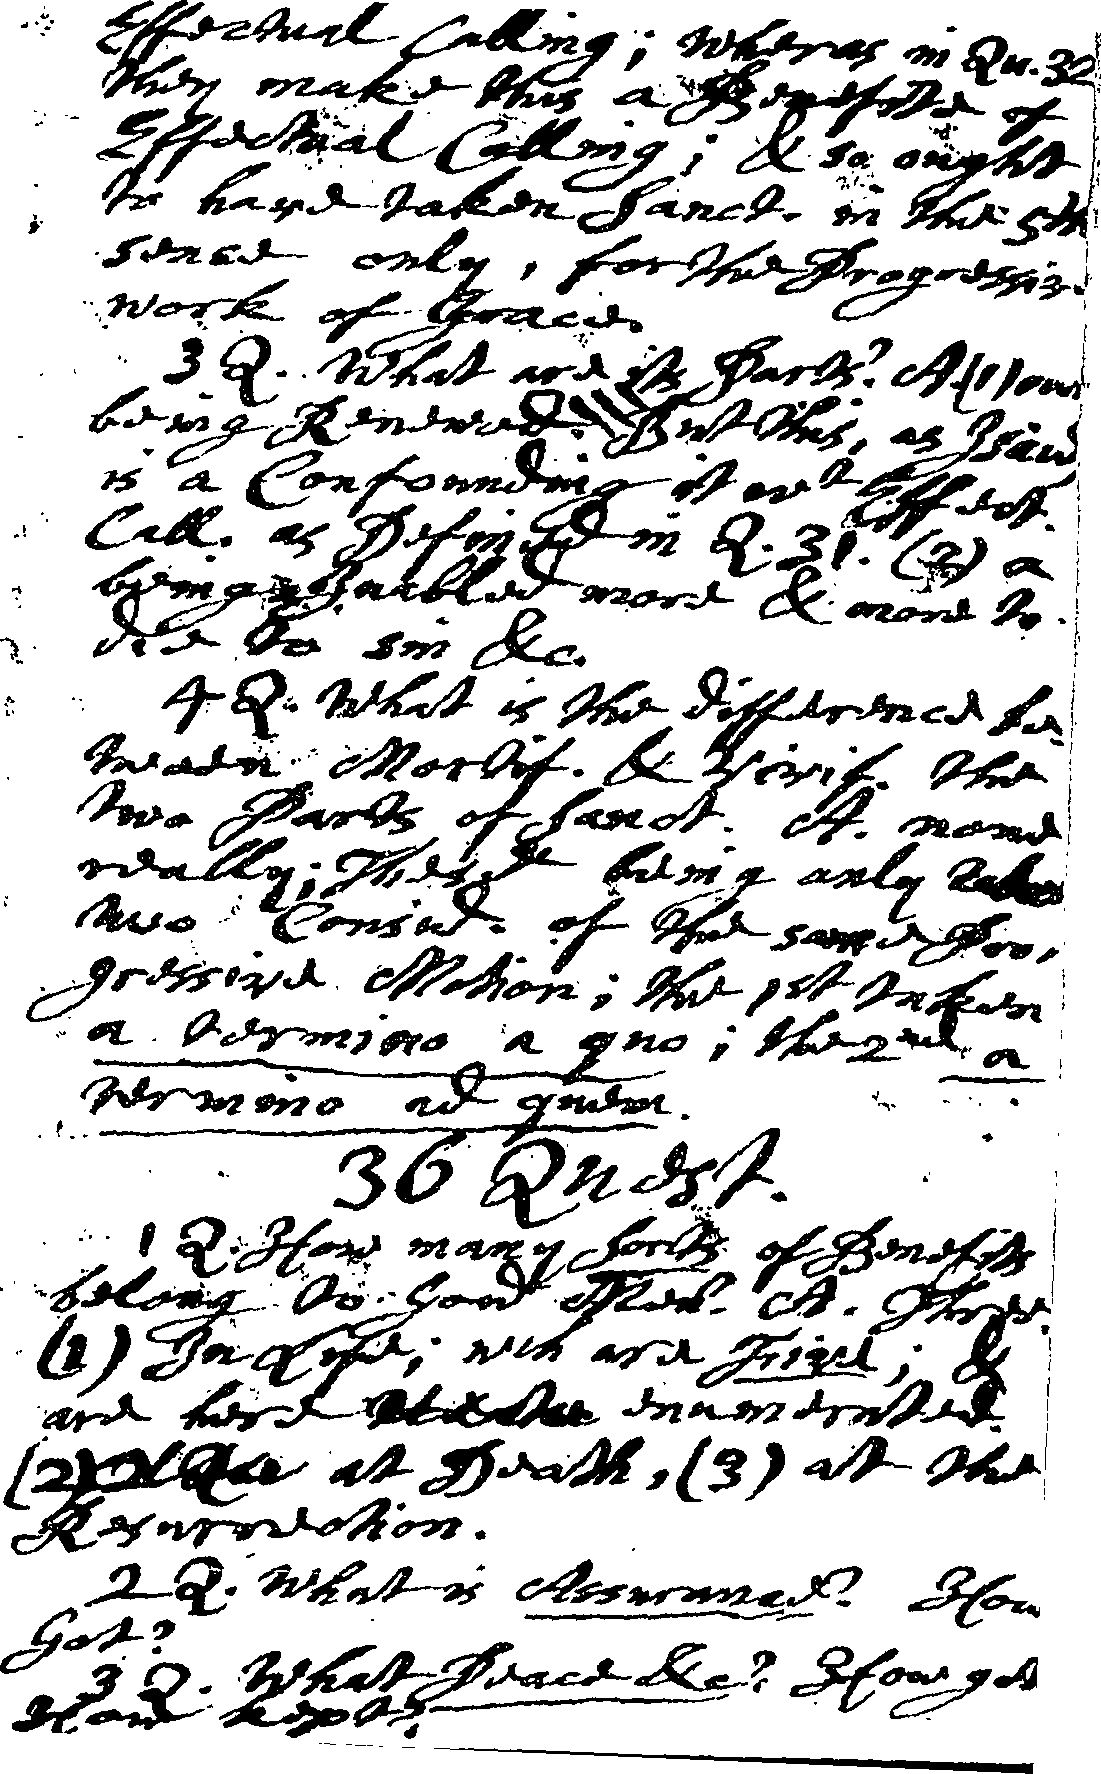 Effectual Calling; wheras in Qu. 32
they make this a Benefite of
Effectual Calling; & so ought
to have taken Sanct. in the 5th
sence only, for the Progressiv.
work of Grace.
3 Q. What are its Parts? A. (1) our
being Renewed. But this, as I said,
is a Confounding it wt Effect.
Call. as Defined in Q. 31. (2) a
being Enabled more & more to
die to sin &c.
4 Q. What is the difference be-
tween Mortif. & Vivif. the
two Parts of Sanct. A. none
really; There being only
two Consid. of the same Pro-
gressive Motion; the 1st taken
a termino a quo; the 2nd a
termino ad quem.
36 Quest.
1 Q. How many Sorts of Benefits
belong to Good Men? A. Three.
(1) In Life; wch are Five; &
are here enumerated.
(2) at Death, (3) at the
Resurrection.
2 Q. What is Assurance? How
Got?
3 Q. What Peace &c? How got
How kept?